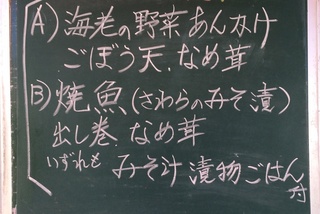 A) 海老の野菜あんかけ
ごぼう天、なめ茸
B) 焼魚(さわらのみそ漬)
出し巻、なめ茸
いずれも みそ汁 漬物ごはん付